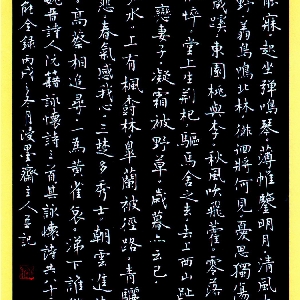 能寐起坐彈鳴琴薄帷鑒明月清風
野翔鳥鳴北林徘徊將何見憂思獨傷
成蹊東園桃與李秋風吹飛藿零落
悴堂上生荊杞驅馬舍之去去上西山趾
戀妻子凝霜被野草歲暮亦云已
水上有楓樹林皋蘭被徑路青驪
悲春氣感我心三楚多秀士朝雲進
高蔡相追尋一為黃雀哀涕下誰
魏晉詩人阮籍詠懷詩之首其詠懷詩共十
能全錄丙戌冬月浸墨齋主人記